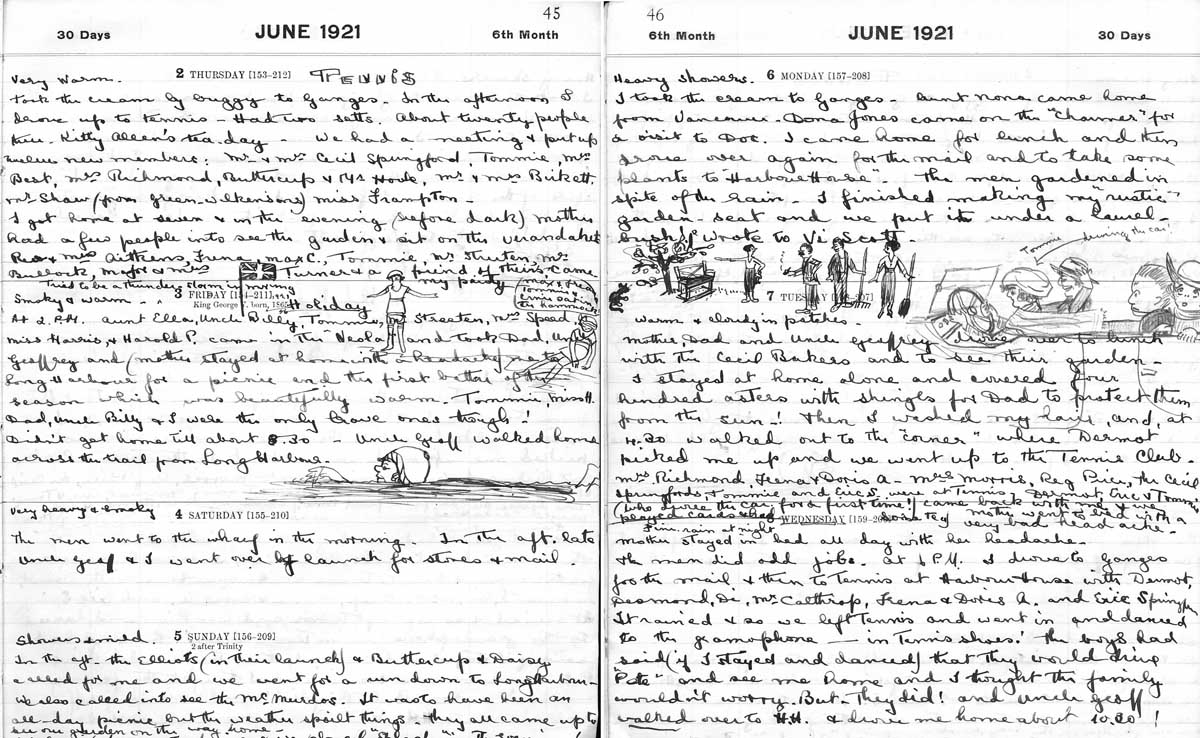 45
30 Days JUNE 1921 6th Month
2 THURSDAY [153-212] TENNIS
Very warm.
Took the cream by buggy to Ganges. In the afternoon I
drove up to tennis – Had two setts. About twenty people
there. Kitty Allen's tea day – We had a meeting & put up
twelve new members: Mr & Mrs Cecil Springford, Tommie, Mrs
Best, Mrs Richmond, Buttercup & Mrs Hook, Mr & Mrs Birkett.
Mr Shaw (from Green-Wilkensons) Miss Frampton –
I got home at seven & in the evening (before dark) mother
had a few people in to see the garden & sit on the verandah
& Mrs Aitkens, Irena, Max C., Tommie, Mr Streeten, Mr
Bullock, Major & Mrs Turner & a friend of theirs came
Tried to be a thunder storm in evening
my party
3 FRIDAY [154-211]
King George V. born, 1865
Holiday
Smoky & warm –
At 2. P.M. Aunt Ella, Uncle Billy, Tommie, Streeten, Mrs Speed
Miss Harris, & Harold P. came in the "Neola" and took Dad,
Geoffrey and (mother stayed at home with a headache) me to
Long Harbour for a picnic and the first bathe of the
season which was beautifully warm. Tommie, Miss H.
Dad, Uncle Billy & I were the only brave ones though!
Didn't get home till about 8.30 – Uncle Geoff walked home
across the trail from Long Harbour.
4 SATURDAY [155-210]
Very heavy & smoky
The men went to the wharf in the morning. In the aft. late
Uncle Geoff & I went over by launch for stores & mail.
5 SUNDAY [156-209]
2 after Trinity
Showers & mild.
In the aft. the Elliots (in their launch) & Buttercup & Daisy
called for me and we went for a run down to Long Harbour –
We also called in to see the McMurdos. It was to have been an
all-day picnic but the weather spoilt things – They all came up to
see our garden on the way home –
46
6th Month JUNE 1921 30 Days
6 MONDAY [157-208]
Heavy showers.
I took the cream to Ganges – Aunt Nona came home
from Vancouver – Dona Jones came on the "Charmer" for
a visit to Dot. I came home for lunch and then
drove over again for the mail and to take some
plants to "Harbour House". The men gardened in
spite of the rain. I finished making my "rustic"
garden – seat and we put it under a laurel –
bush! Wrote to Vi Scott –
Tommie driving the car!
7 TUESDAY
Warm & cloudy in patches –
Mother, Dad and Uncle Geoffrey drove over to lunch
with the Cecil Bakers and to see their garden –
I stayed at home alone and covered four
hundred asters with shingles for Dad to protect them
from the sun –! Then I washed my hair, and, at
4.30 walked out to the "corner" where Dermot
picked me up and we went up to the Tennis Club –
Mrs Richmond, Irena & Doris A – Mrs Morris, Reg Price, the Cecil
Springfords & Tommie, and Eric S. were at Tennis. Dermot, Eric & Tommie
(who drove the car for a first time!) came back with me & we
played cards & had Mother went to bed with a
very bad headache –
WEDNESDAY
rain at night
Mother stayed in bed all day with her headache –
The men did odd jobs. At 1 P.M. I drove to Ganges
for the mail & then to Tennis at Harbour House with Dermot,
Desmond, Di, Mrs Calthrop, Irena & Doris A. and Eric Springford
It rained & so we left Tennis and went in and danced
to the gramophone – in Tennis shoes! The boys had
said (if I stayed and danced) that they would drive
"Pete" and see me home and I thought the family
wouldn't worry. But – They did! And Uncle Geoff
walked over to H.H. & drove me home about 10.30!